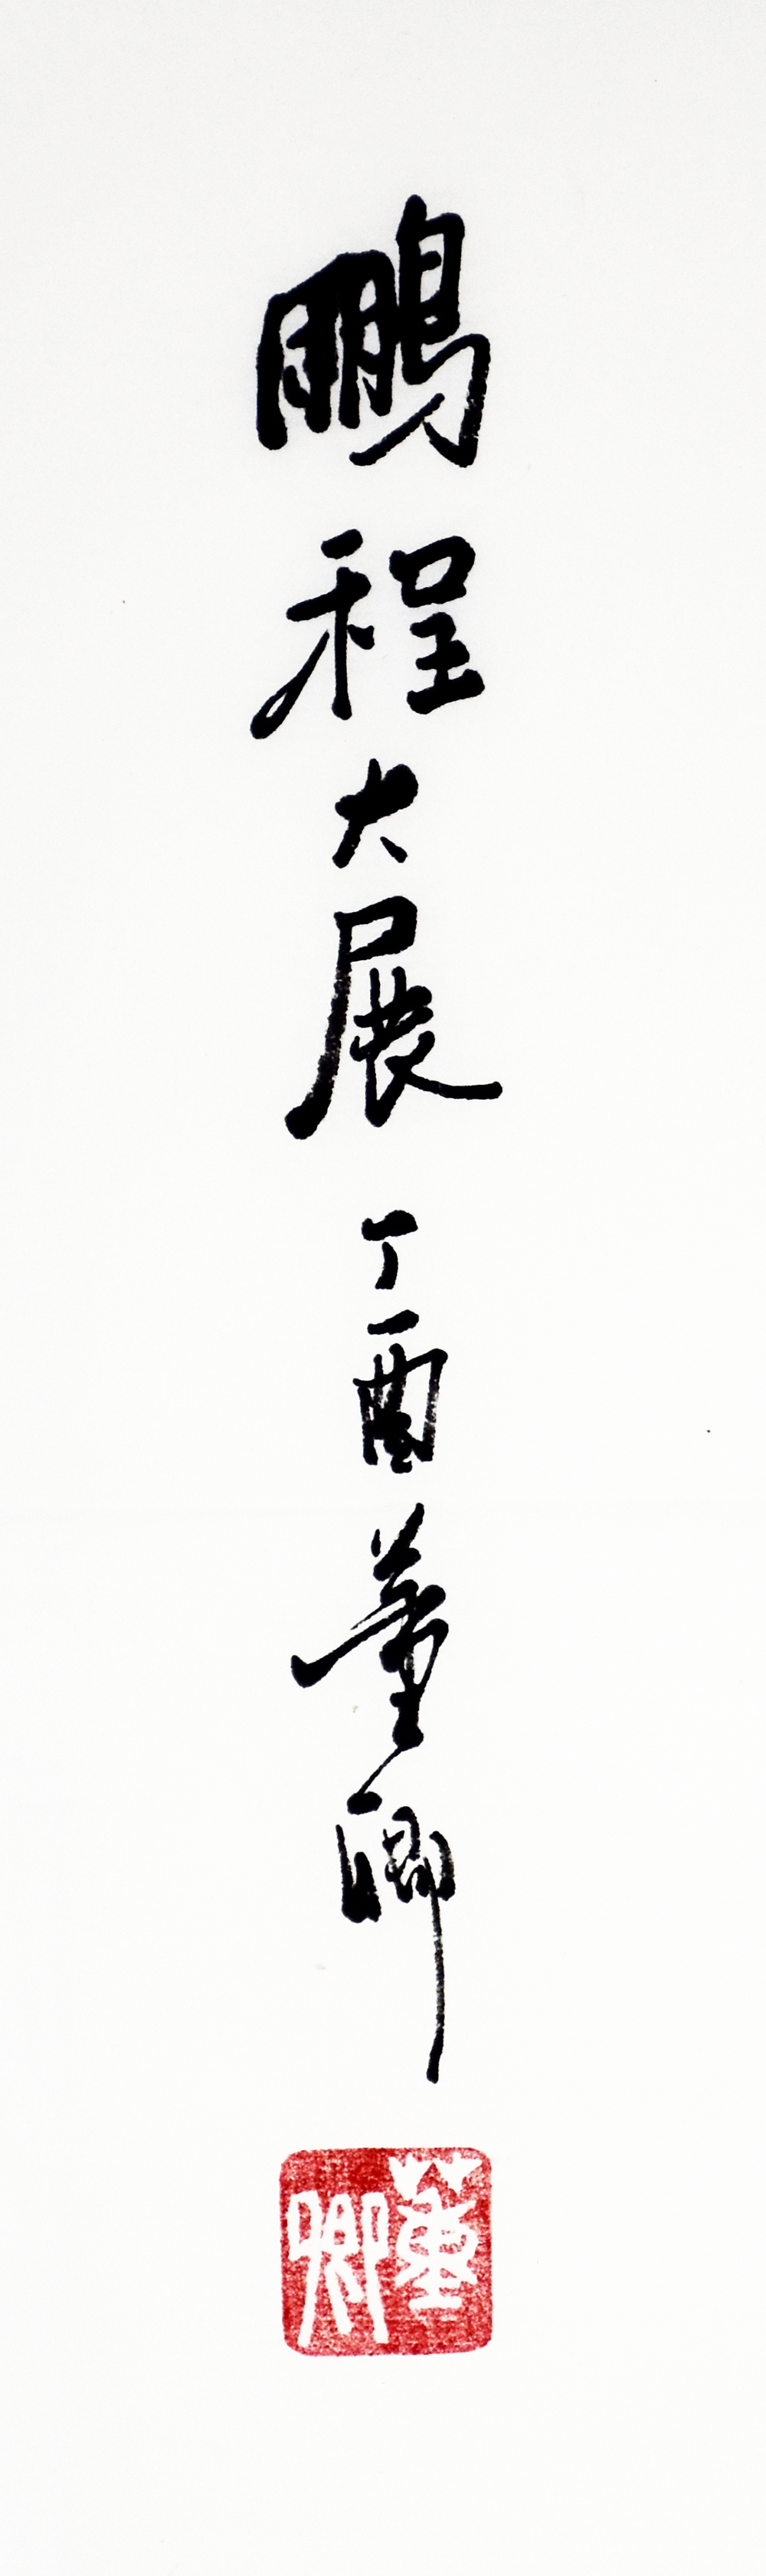 鵬程大展 丁酉 董卿
董卿